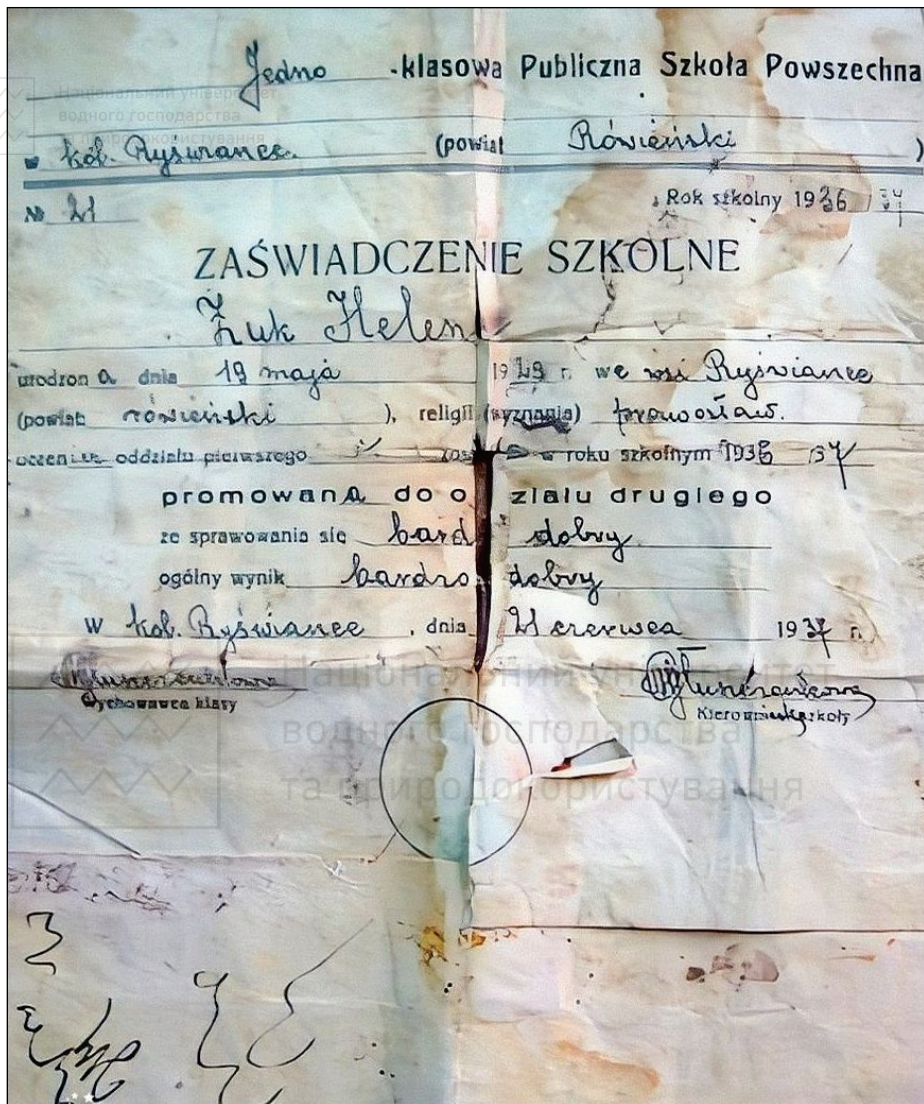 Jedno -klasowa Publiczna Szkoła Powszechna
Національний університет
водного господарства
та природокористування
w kol. Ryświance (powiat Rówieński )
№ 21 Rok szkolny 1936 37
ZAŚWIADCZENIE SZKOLNE
Żuk Helena
urodzona dnia 19 maja 1929 r. we wsi Ryświance
(powiat rówieński ), religii (wyznania) prawosław.
uczenica oddziału pierwszego w roku szkolnym 1936 37
promowana do o działu drugiego
ze sprawowania się bard dobry
ogólny wynik bardzo dobry
W kol. Ryświance , dnia 21 czerwca 1937 r.
Національний університет
Wychowawca klasy
Kierownik szkoły
водного господарства
та природокористування